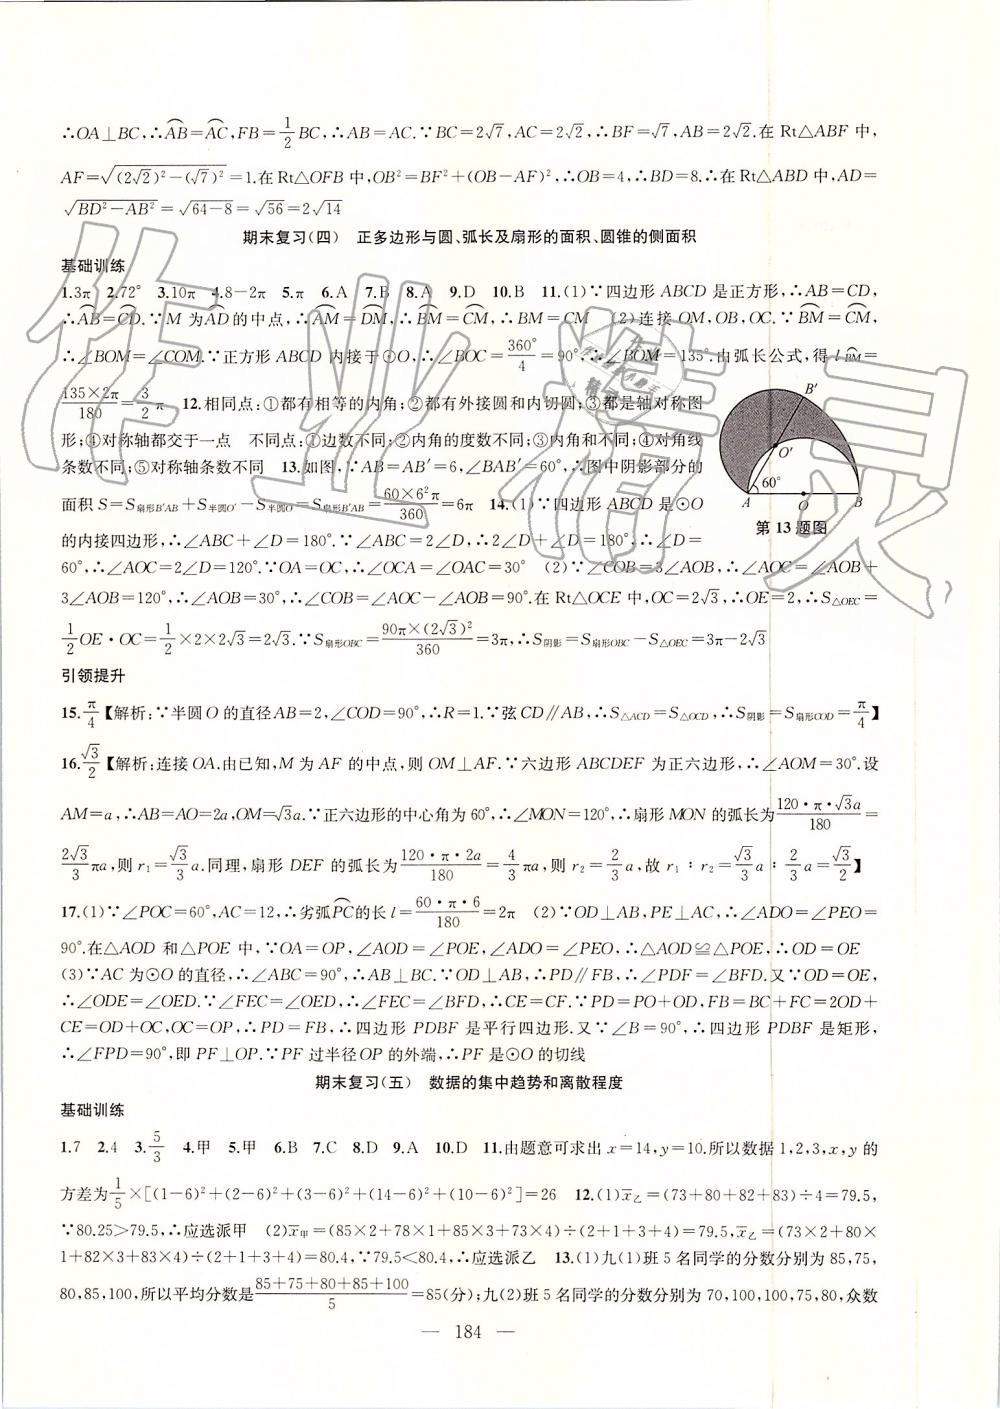 ∴OA⊥BC,∴AB⌒=AC⌒,FB=1/2BC,∴AB=AC.∵BC=2√7,AC=2√2,∴BF=√7,AB=2√2.在Rt△ABF中,
AF=√((2√2)²-(√7)²)=1.在Rt△OFB中,OB²=BF²+(OB-AF)²,∴OB=4,∴BD=8.∴在Rt△ABD中,AD=
√(BD²-AB²)=√(64-8)=√56=2√14
期末复习(四) 正多边形与圆、弧长及扇形的面积、圆锥的侧面积
基础训练
1.3π 2.72° 3.10π 4.8-2π 5.π 6.A 7.B 8.A 9.D 10.B 11.(1)∵四边形ABCD是正方形,∴AB=CD,
∴AB⌒=CD⌒.∵M为AD⌒的中点,∴AM⌒=DM⌒,∴BM⌒=CM⌒,∴BM=CM (2)连接OM,OB,OC.∵BM⌒=CM⌒,
∴∠BOM=∠COM.∵正方形ABCD内接于⊙O,∴∠BOC=360°/4=90°,∴∠BOM=135°.由弧长公式,得l BM⌒=
135×2π/180=3/2π 12.相同点:①都有相等的内角;②都有外接圆和内切圆;③都是轴对称图
形;④对称轴都交于一点 不同点:①边数不同;②内角的度数不同;③内角和不同;④对角线
条数不同;⑤对称轴条数不同 13.如图,∵AB=AB′=6,∠BAB′=60°,∴图中阴影部分的
面积S=S扇形B′AB+S半圆O′-S半圆O=S扇形B′AB=60×6²π/360=6π 14.(1)∵四边形ABCD是⊙O
B′
O′
60°
A O B
第13题图
的内接四边形,∴∠ABC+∠D=180°.∵∠ABC=2∠D,∴2∠D+∠D=180°,∴∠D=
60°,∴∠AOC=2∠D=120°.∵OA=OC,∴∠OCA=∠OAC=30° (2)∵∠COB=3∠AOB,∴∠AOC=∠AOB+
3∠AOB=120°,∴∠AOB=30°,∴∠COB=∠AOC-∠AOB=90°.在Rt△OCE中,OC=2√3,∴OE=2,∴S△OEC=
1/2OE·OC=1/2×2×2√3=2√3.∵S扇形OBC=90π×(2√3)²/360=3π,∴S阴影=S扇形OBC-S△OEC=3π-2√3
引领提升
15.π/4【解析:∵半圆O的直径AB=2,∠COD=90°,∴R=1.∵弦CD∥AB,∴S△ACD=S△OCD,∴S阴影=S扇形COD=π/4】
16.√3/2【解析:连接OA.由已知,M为AF的中点,则OM⊥AF.∵六边形ABCDEF为正六边形,∴∠AOM=30°.设
AM=a,∴AB=AO=2a,OM=√3a.∵正六边形的中心角为60°,∴∠MON=120°,∴扇形MON的弧长为120·π·√3a/180=
2√3/3πa,则r₁=√3/3a.同理,扇形DEF的弧长为120·π·2a/180=4/3πa,则r₂=2/3a,故r₁∶r₂=√3/3a∶2/3a=√3/2】
17.(1)∵∠POC=60°,AC=12,∴劣弧PC⌒的长l=60·π·6/180=2π (2)∵OD⊥AB,PE⊥AC,∴∠ADO=∠PEO=
90°.在△AOD和△POE中,∵OA=OP,∠AOD=∠POE,∠ADO=∠PEO,∴△AOD≌△POE,∴OD=OE
(3)∵AC为⊙O的直径,∴∠ABC=90°,∴AB⊥BC.∵OD⊥AB,∴PD∥FB,∴∠PDF=∠BFD.又∵OD=OE,
∴∠ODE=∠OED.∵∠FEC=∠OED,∴∠FEC=∠BFD,∴CE=CF.∵PD=PO+OD,FB=BC+FC=2OD+
CE=OD+OC,OC=OP,∴PD=FB,∴四边形PDBF是平行四边形.又∵∠B=90°,∴四边形PDBF是矩形,
∴∠FPD=90°,即PF⊥OP.∵PF过半径OP的外端,∴PF是⊙O的切线
期末复习(五) 数据的集中趋势和离散程度
基础训练
1.7 2.4 3.5/3 4.甲 5.甲 6.B 7.C 8.D 9.A 10.D 11.由题意可求出x=14,y=10.所以数据1,2,3,x,y的
方差为1/5×[(1-6)²+(2-6)²+(3-6)²+(14-6)²+(10-6)²]=26 12.(1)x̄乙=(73+80+82+83)÷4=79.5,
∵80.25>79.5,∴应选派甲 (2)x̄甲=(85×2+78×1+85×3+73×4)÷(2+1+3+4)=79.5,x̄乙=(73×2+80×
1+82×3+83×4)÷(2+1+3+4)=80.4,∵79.5<80.4,∴应选派乙 13.(1)九(1)班5名同学的分数分别为85,75,
80,85,100,所以平均分数是85+75+80+85+100/5=85(分);九(2)班5名同学的分数分别为70,100,100,75,80,众数
— 184 —
作业精灵